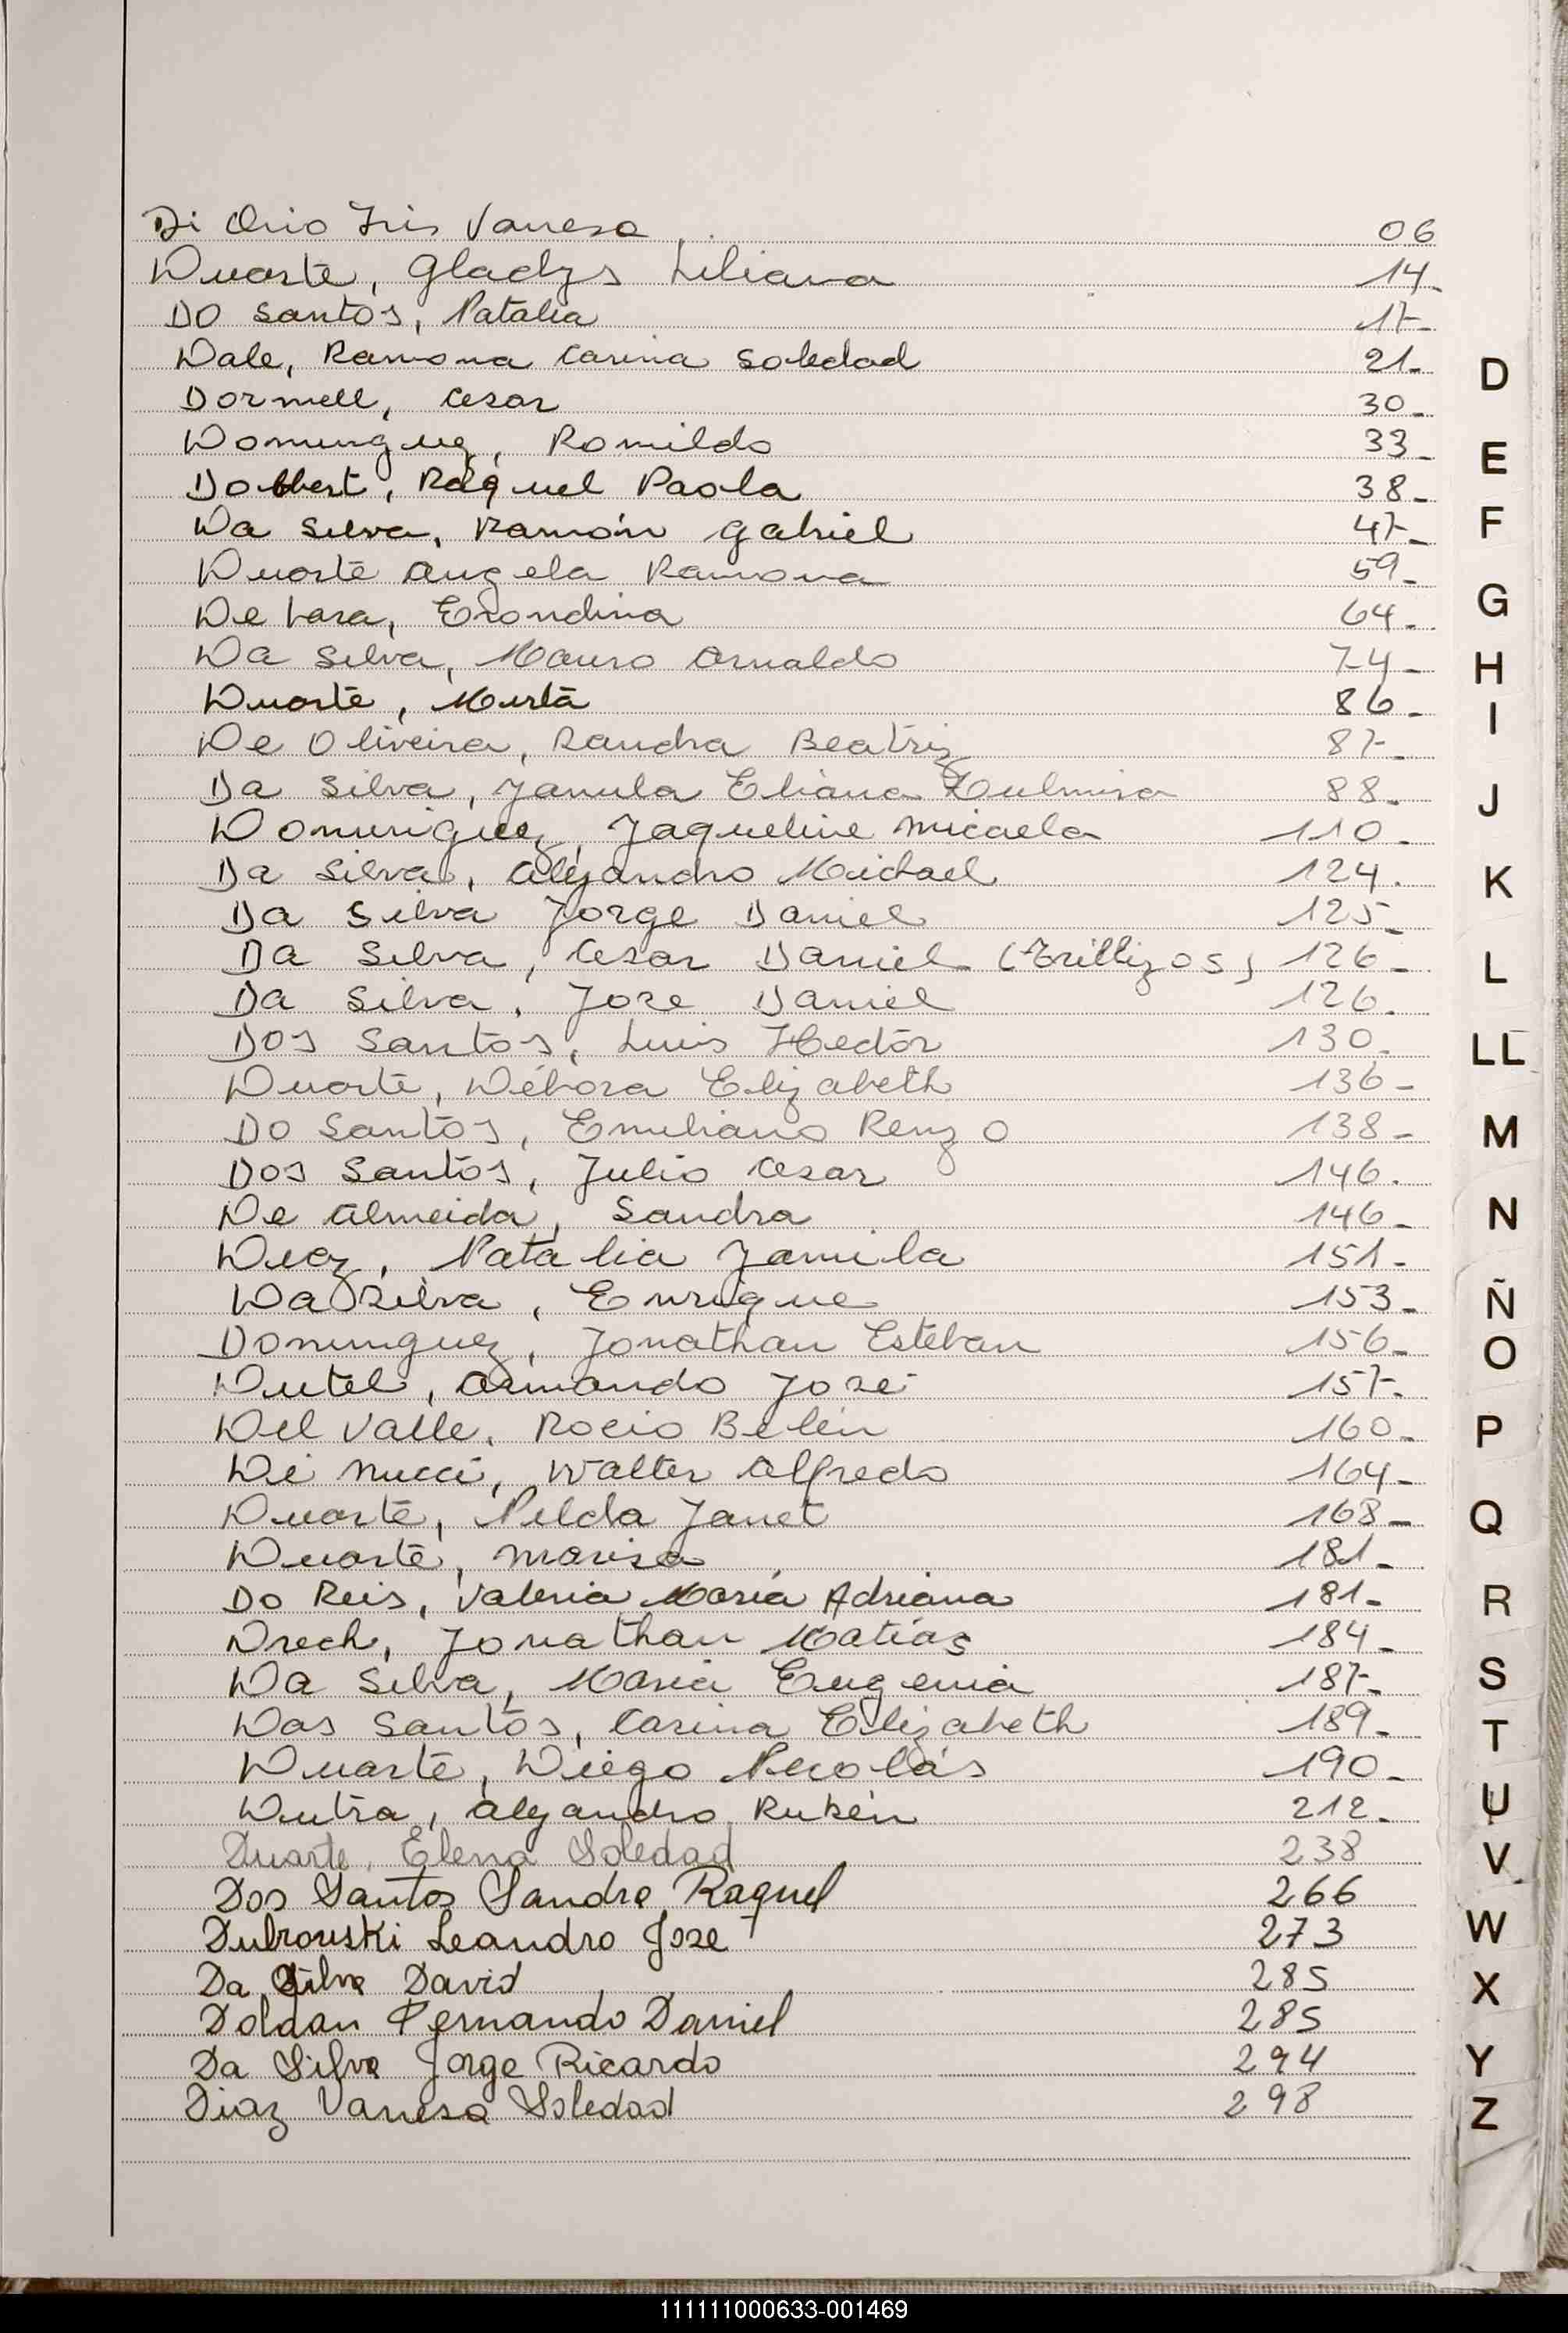 Di Orio Iris Vanesa 06
Duarte, Gladys Liliana 14-
Do Santos, Natalia 17-
Dale, Ramona Carina Soledad 21-
Dormell, Cesar 30-
Dominguez, Romildo 33-
Dobbert, Raquel Paola 38-
Da Silva, Ramón Gabriel 47-
Duarte Angela Ramona 59-
De Lara, Erondina 64-
Da Silva, Mauro Arnaldo 74-
Duarte, Mirta 86-
De Oliveira, Sandra Beatriz 87-
Da Silva, Eliana 88-
Dominguez, Jaqueline Micaela 110-
Da Silva, Alejandro Michael 124.
Da Silva Jorge Daniel 125-
Da Silva, Cesar Daniel (Trillizos) 126-
Da Silva, Jose Daniel 126.
Dos Santos, Luis Hector 130.
Duarte, Débora Elizabeth 136-
Do Santos, Emiliano Renzo 138-
Dos Santos, Julio Cesar 146.
De Almeida, Sandra 146-
Diaz, Natalia Jamila 151-
Da Silva, Enrique 153-
Dominguez, Jonathan Esteban 156-
Dutel, Armando José 157-
Del Valle, Rocio Belén 160-
Di Nucci, Walter Alfredo 164-
Duarte, Nilda Janet 168-
Duarte, Marisa 181-
Do Reis, Valeria María Adriana 181-
Drech, Jonathan Matías 184-
Da Silva, Maria Eugenia 187-
Das Santos, Carina Elizabeth 189-
Duarte, Diego Nicolás 190-
Dutra, Alejandro Rubén 212-
Duarte, Elena Soledad 238
Dos Santos Sandra Raquel 266
Dubrouski Leandro Jose 273
Da Silva David 285
Doldan Fernando Daniel 285
Da Silva Jorge Ricardo 294
Diaz Vanesa Soledad 298
D
E
F
G
H
I
J
K
L
LL
M
N
Ñ
O
P
Q
R
S
T
U
V
W
X
Y
Z
111111000633-001469